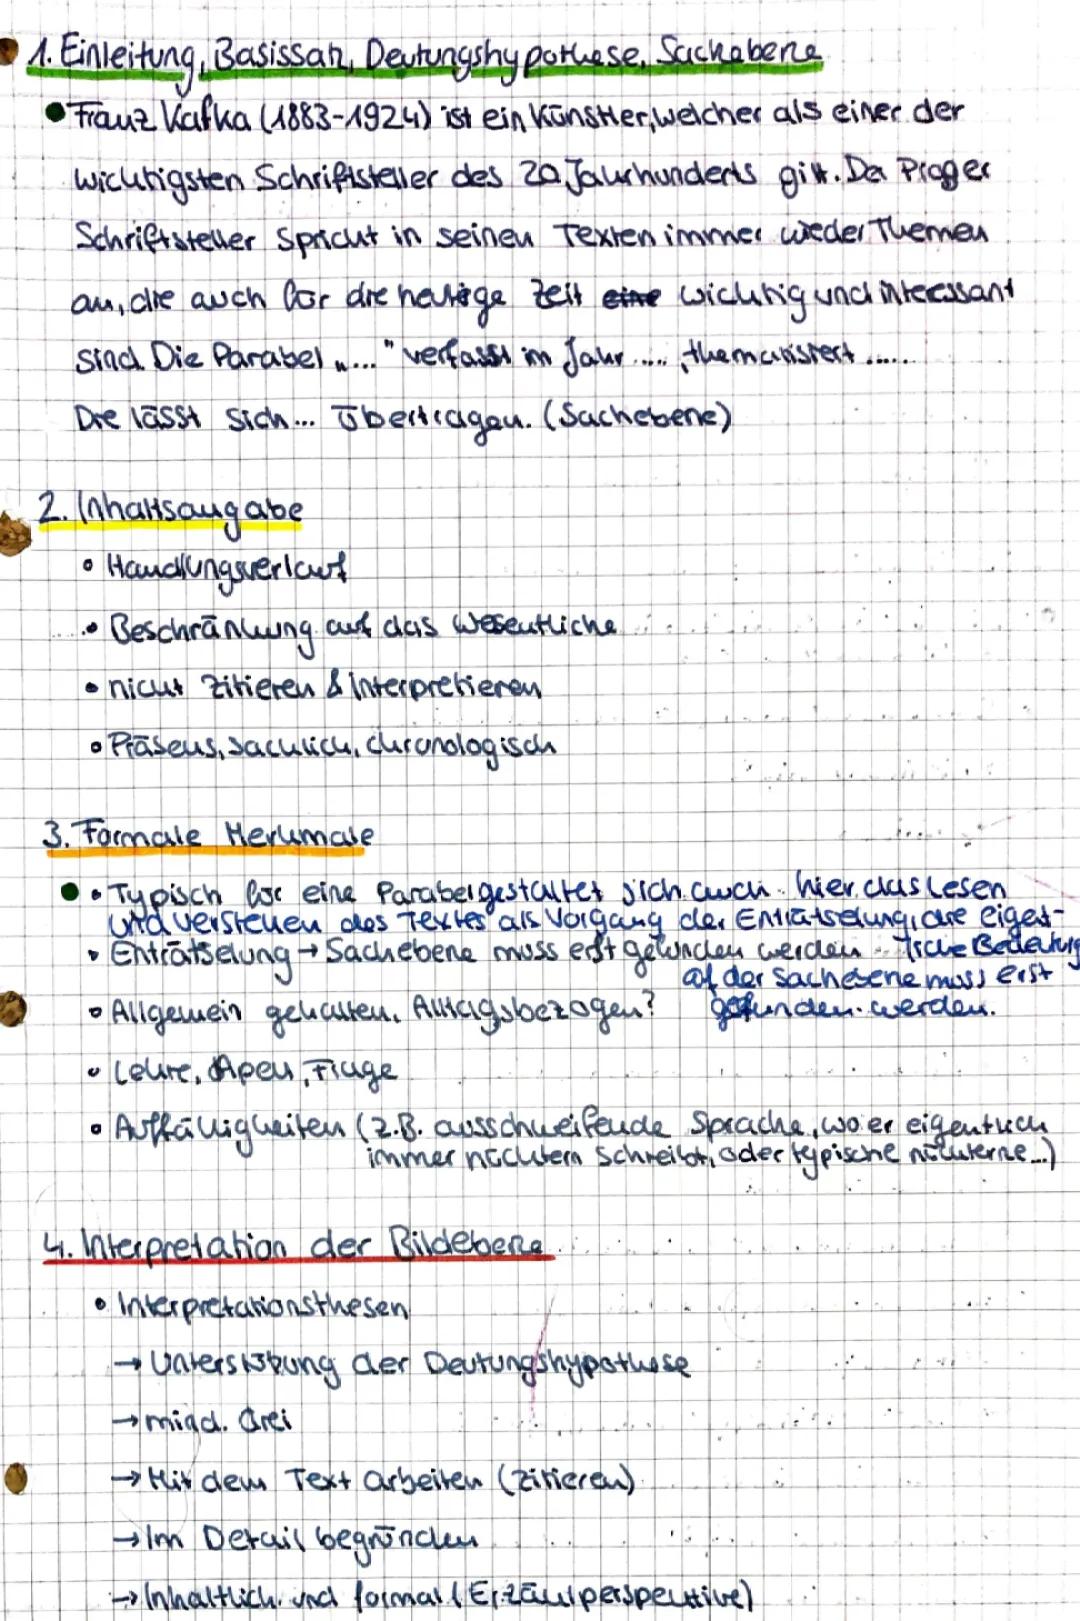 1. Einleitung, Basissatz, Deutungshypothese, Sachebene
• Franz Kafka (1883-1924) ist ein Künstler, welcher als einer der
wichtigsten Schriftsteller des 20 Jahrhunderts gilt. Der Prager
Schriftsteller spricht in seinen Texten immer wieder Themen
an, die auch für die heutige Zeit eine wichtig und interessant
sind. Die Parabel „...." verfasst im Jahr ...., thematisiert ......
Die lässt sich ... übertragen. (Sachebene)
2. Inhaltsangabe
• Handlungsverlauf
• Beschränkung auf das wesentliche
• nicht zitieren & interpretieren
• Präsens, sachlich, chronologisch
3. Formale Merkmale
• Typisch für eine Parabel gestaltet sich auch hier das Lesen
und verstehen des Textes als Vorgang der Enträtselung, die eigent-
• Enträtselung → Sachebene muss erst gefunden werden
liche Bedeutung
auf der Sachebene muss erst
• Allgemein gehalten, Alltagsbezogen?
gefunden werden.
• Lehre, Apell, Frage
• Auffälligkeiten (z.B. ausschweifende Sprache, wo er eigentlich
immer nüchtern schreibt, oder typische nüchterne ...)
4. Interpretation der Bildebene
• Interpretationsthesen
→ Unterstützung der Deutungshypothese
→ mind. drei
→ Mit dem Text arbeiten (zitieren)
→ Im Detail begründen
→ Inhaltlich und formal (Erzählperspektive)